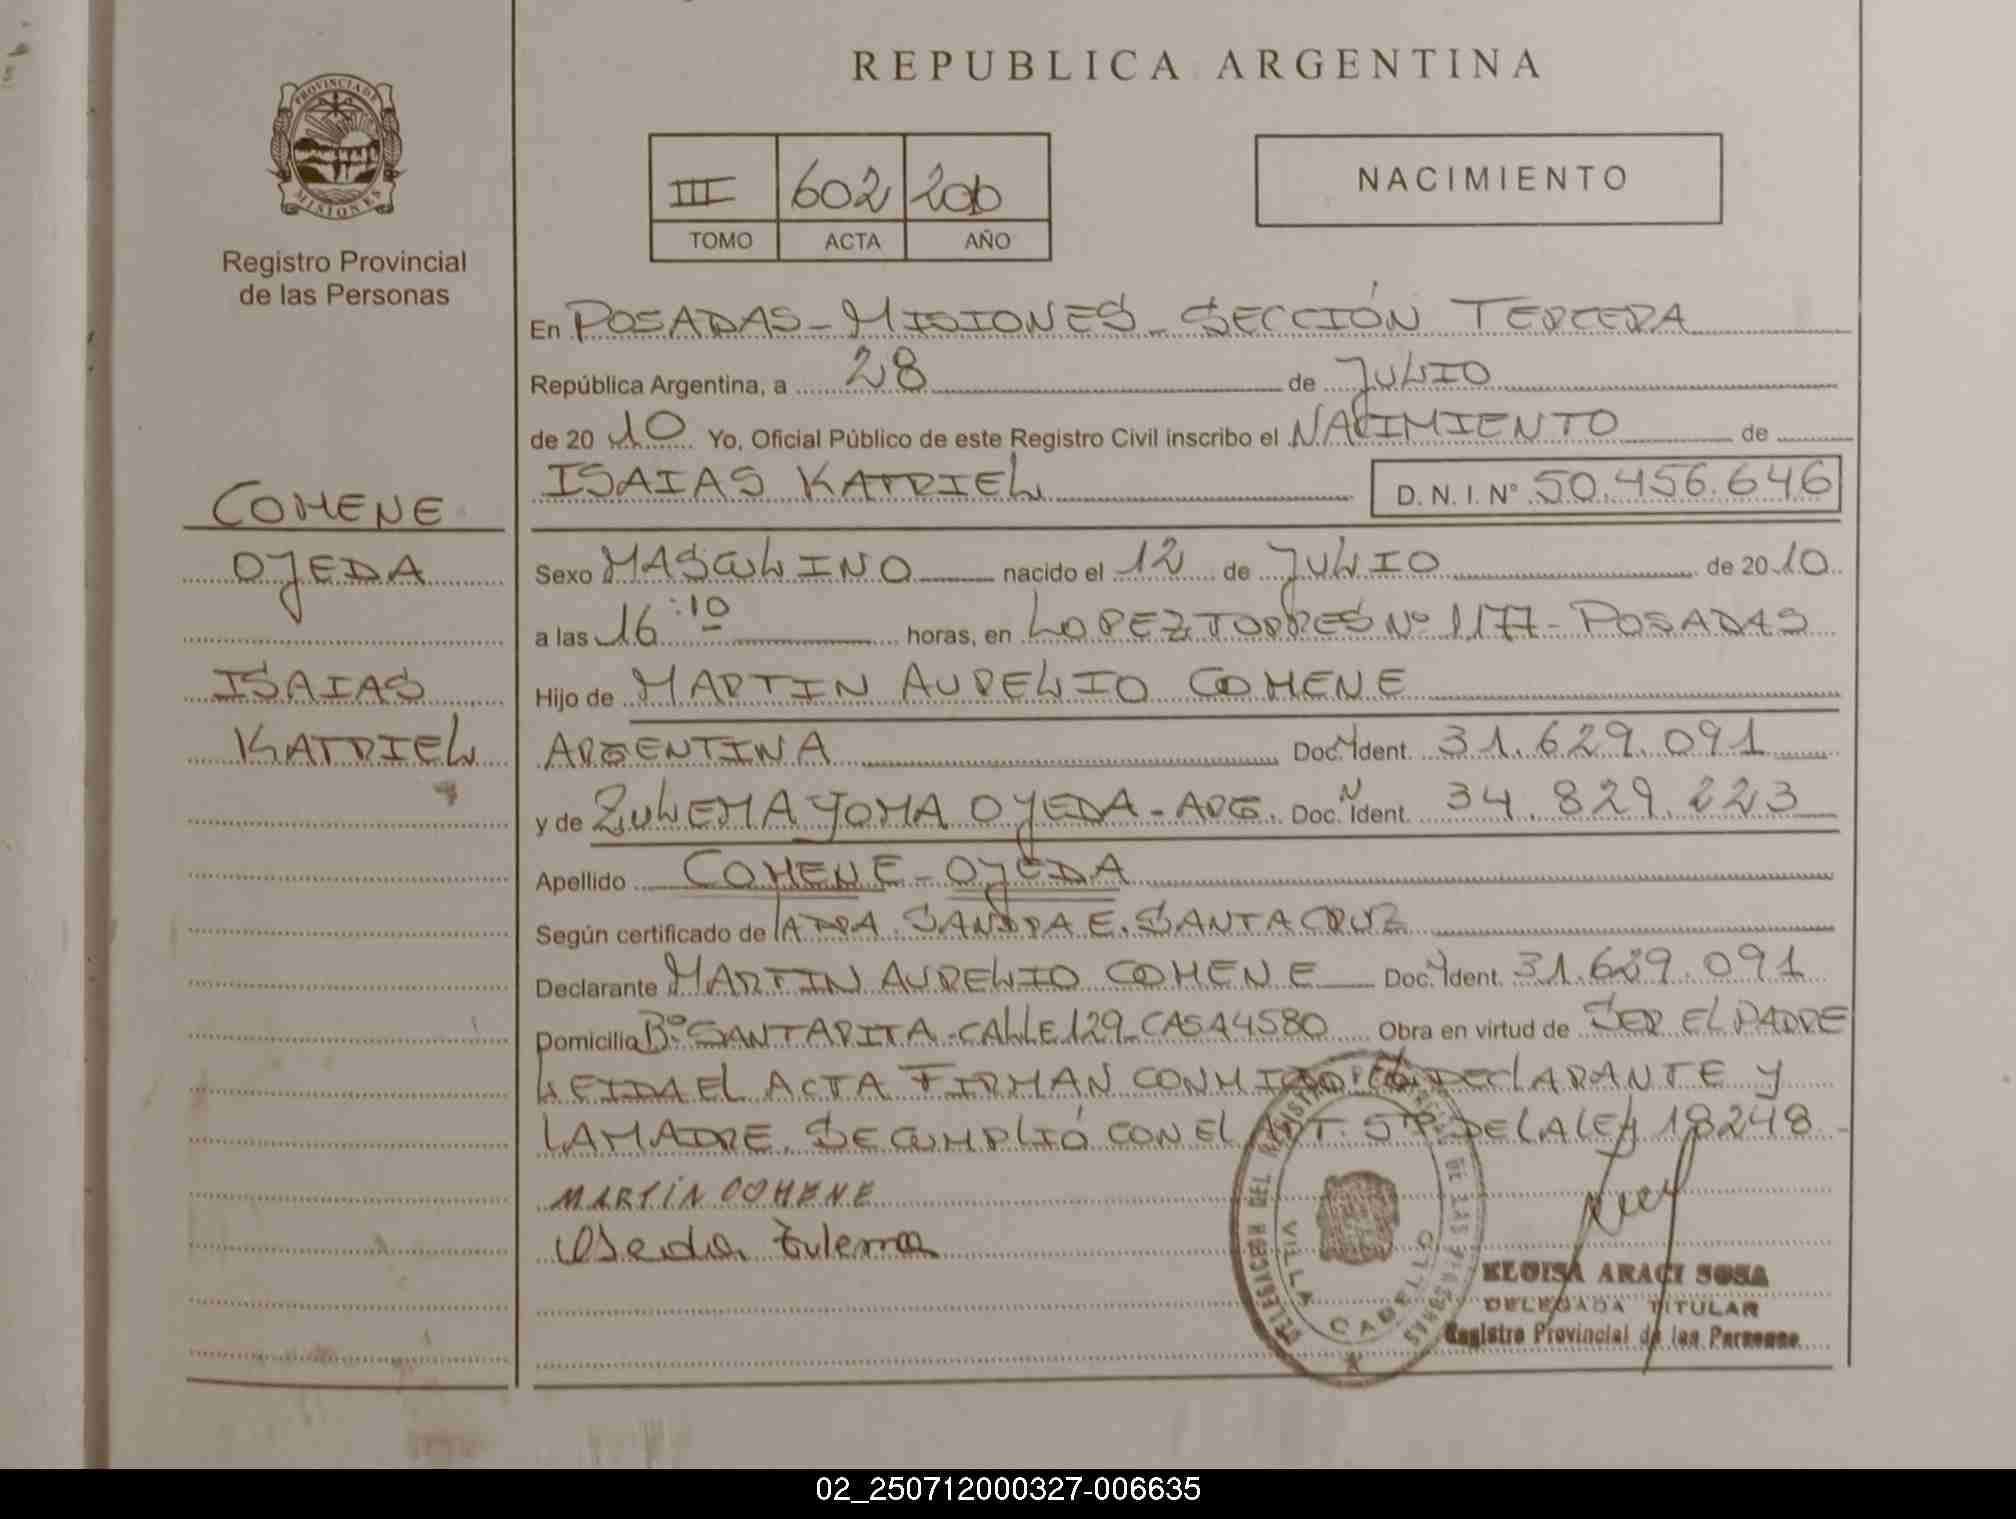 REPUBLICA ARGENTINA
PROVINCIA DE
MISIONES
Registro Provincial
de las Personas
III 602 2010
TOMO ACTA AÑO
NACIMIENTO
En POSADAS - MISIONES - SECCIÓN TERCERA
República Argentina, a 28 de JULIO
de 20 10 Yo, Oficial Público de este Registro Civil inscribo el NACIMIENTO de
ISAIAS KATRIEL D. N. I. Nº 50.456.646
COHENE
OJEDA
ISAIAS
KATRIEL
Sexo MASCULINO nacido el 12 de JULIO de 20 10
a las 16:10 horas, en LOPEZ TORRES Nº 1177 - POSADAS
Hijo de MARTIN AURELIO COHENE
ARGENTINA Doc. Ident. 31.629.091
y de ZULEMA YOMA OJEDA - ARG. Doc. Ident. 34.829.223
Apellido COHENE - OJEDA
Según certificado de SANDRA E. SANTA CRUZ
Declarante MARTIN AURELIO COHENE Doc. Ident. 31.629.091
Domicilio Bº SANTA RITA - CALLE 129 - CASA 4580 Obra en virtud de SER EL PADRE
LEIDA EL ACTA FIRMAN CONMIGO EL DECLARANTE Y
LA MADRE. SE CUMPLIÓ CON EL ART. 5º DE LA LEY 18248 -
MARTÍN COHENE
Ojeda Zulema
DELEGACION DEL REGISTRO PROVINCIAL DE LAS PERSONAS
VILLA CABELLO
ELOISA ARACI SOSA
DELEGADA TITULAR
Registro Provincial de las Personas
02_250712000327-006635